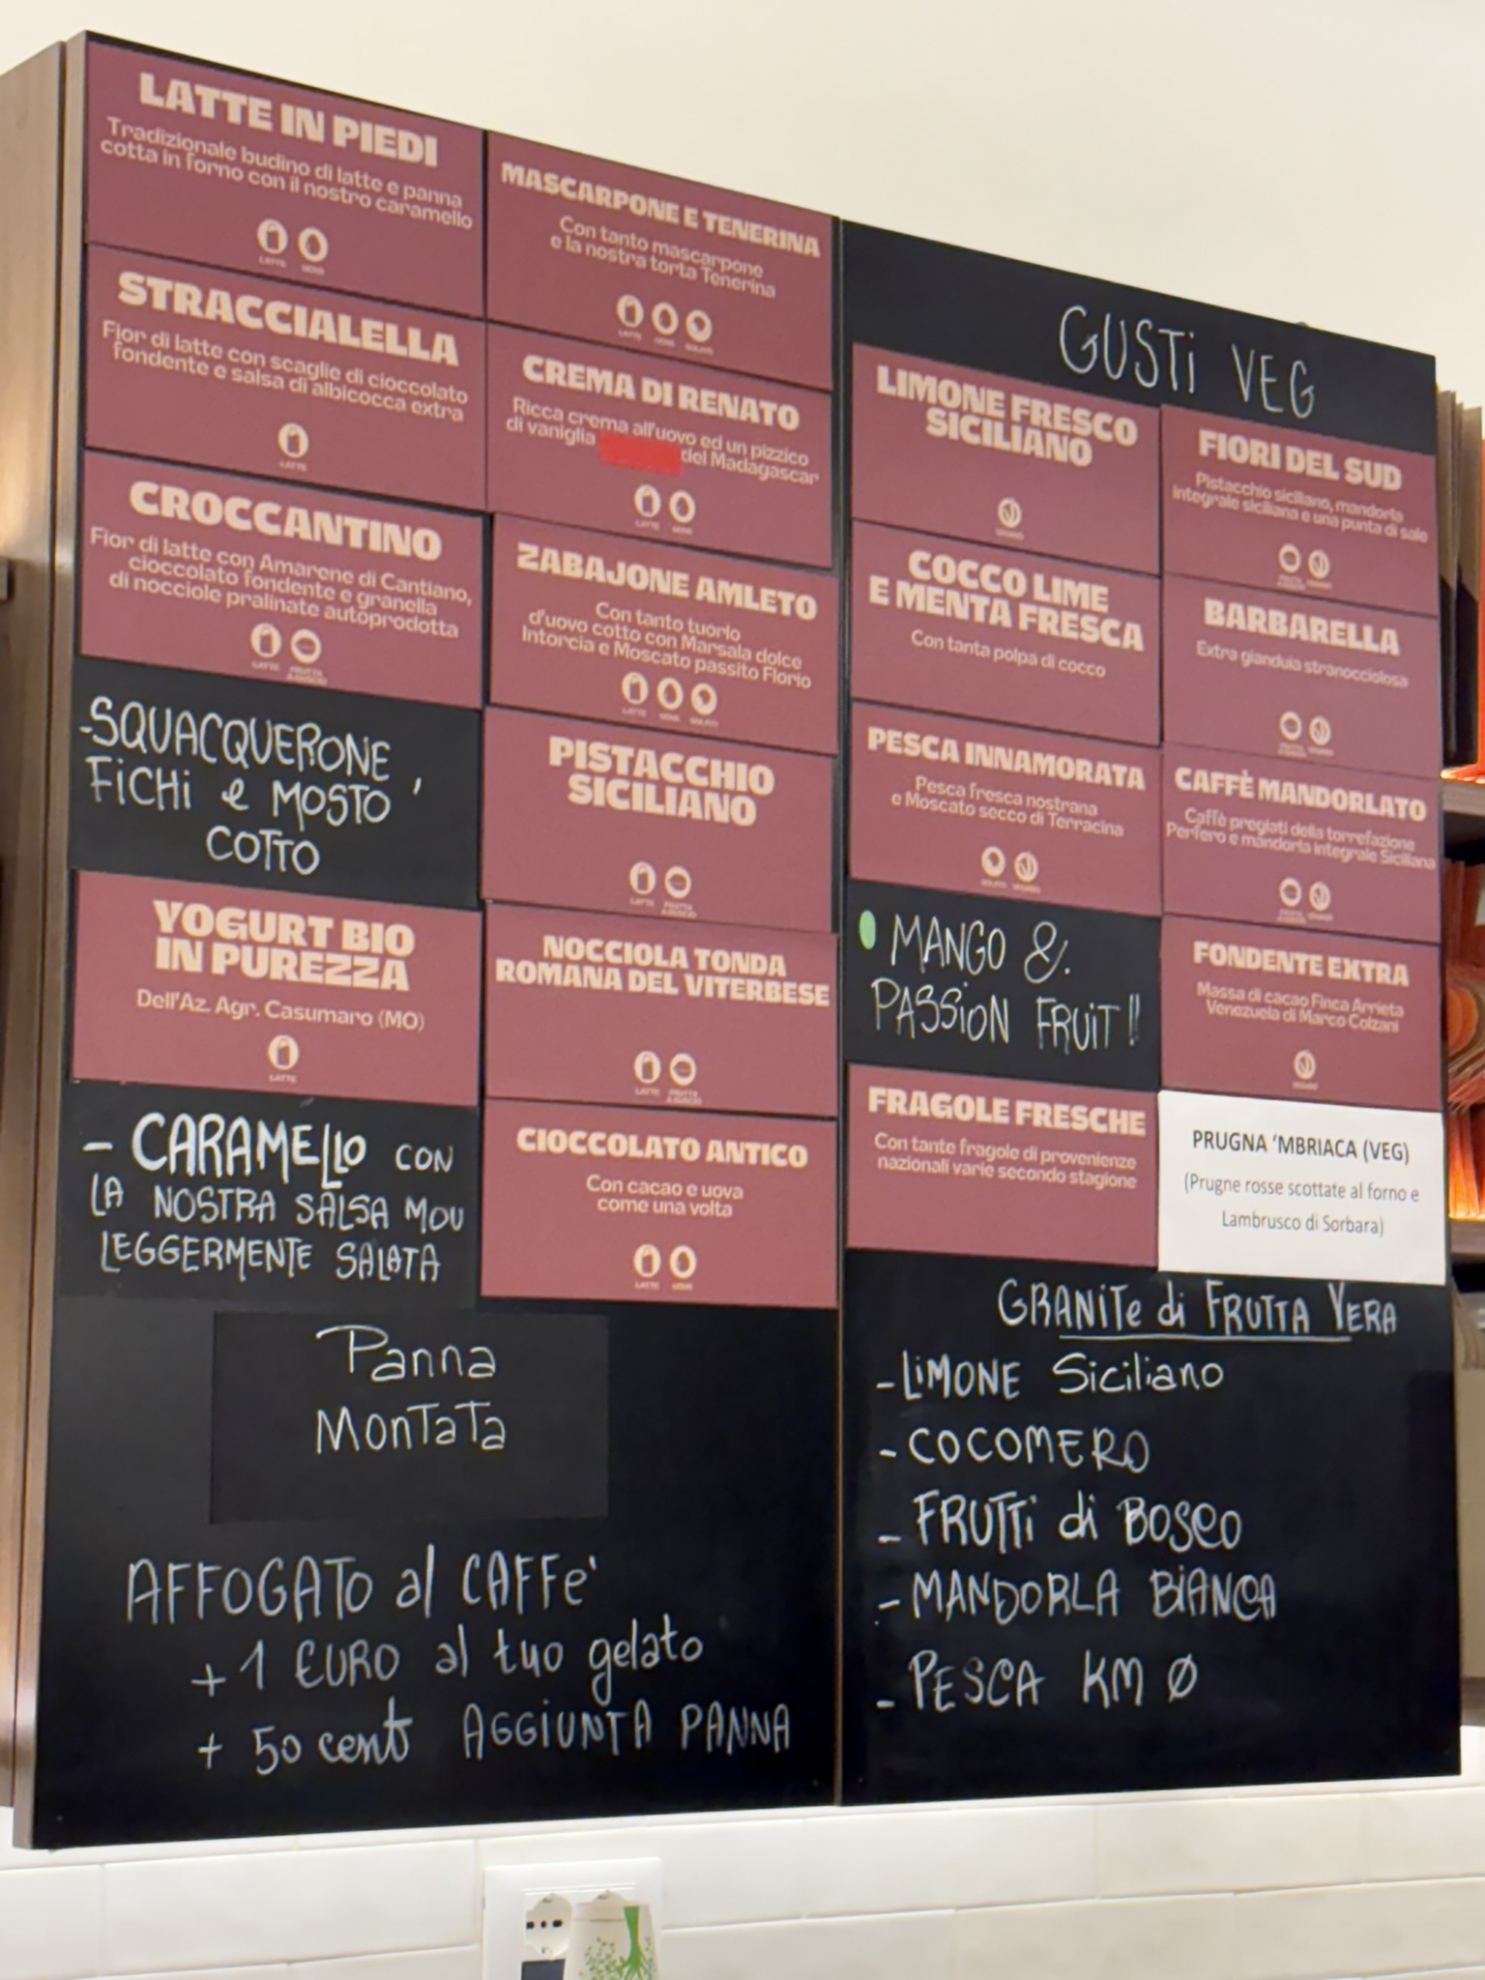 LATTE IN PIEDI
Tradizionale budino di latte e panna
cotta in forno con il nostro caramello
LATTE UOVA
STRACCIALELLA
Fior di latte con scaglie di cioccolato
fondente e salsa di albicocca extra
LATTE
CROCCANTINO
Fior di latte con Amarene di Cantiano,
cioccolato fondente e granella
di nocciole pralinate autoprodotta
LATTE FRUTTA A GUSCIO
-SQUACQUERONE,
FICHI e MOSTO
COTTO
YOGURT BIO
IN PUREZZA
Dell'Az. Agr. Casumaro (MO)
LATTE
- CARAMELLO CON
LA NOSTRA SALSA MOU
LEGGERMENTE SALATA
Panna
MonTaTa
AFFOGATO al CAFFe'
+ 1 EURO al tuo gelato
+ 50 cent AGGIUNTA PANNA
MASCARPONE E TENERINA
Con tanto mascarpone
e la nostra torta Tenerina
LATTE UOVA SOLFITI
CREMA DI RENATO
Ricca crema all'uovo ed un pizzico
di vaniglia del Madagascar
LATTE UOVA
ZABAJONE AMLETO
Con tanto tuorlo
d'uovo cotto con Marsala dolce
Intorcia e Moscato passito Florio
LATTE UOVA SOLFITI
PISTACCHIO
SICILIANO
LATTE FRUTTA A GUSCIO
NOCCIOLA TONDA
ROMANA DEL VITERBESE
LATTE FRUTTA A GUSCIO
CIOCCOLATO ANTICO
Con cacao e uova
come una volta
LATTE UOVA
GUSTi VEG
LIMONE FRESCO
SICILIANO
VEGANO
COCCO LIME
E MENTA FRESCA
Con tanta polpa di cocco
PESCA INNAMORATA
Pesca fresca nostrana
e Moscato secco di Terracina
SOLFITI VEGANO
MANGO &
PASSiON FRUiT!!
FRAGOLE FRESCHE
Con tante fragole di provenienze
nazionali varie secondo stagione
FIORI DEL SUD
Pistacchio siciliano, mandorla
integrale siciliana e una punta di sale
FRUTTA A GUSCIO VEGANO
BARBARELLA
Extra gianduia stranocciolosa
FRUTTA A GUSCIO VEGANO
CAFFÈ MANDORLATO
Caffè pregiati della torrefazione
Perfero e mandorla integrale Siciliana
FRUTTA A GUSCIO VEGANO
FONDENTE EXTRA
Massa di cacao Finca Arrieta
Venezuela di Marco Colzani
VEGANO
PRUGNA 'MBRIACA (VEG)
(Prugne rosse scottate al forno e
Lambrusco di Sorbara)
GRANiTe di FRUTTA VERA
-LiMONE Siciliano
-COCOMERO
- FRUTTi di BOSCO
-MANDORLA BiANCA
- PESCA KM Ø